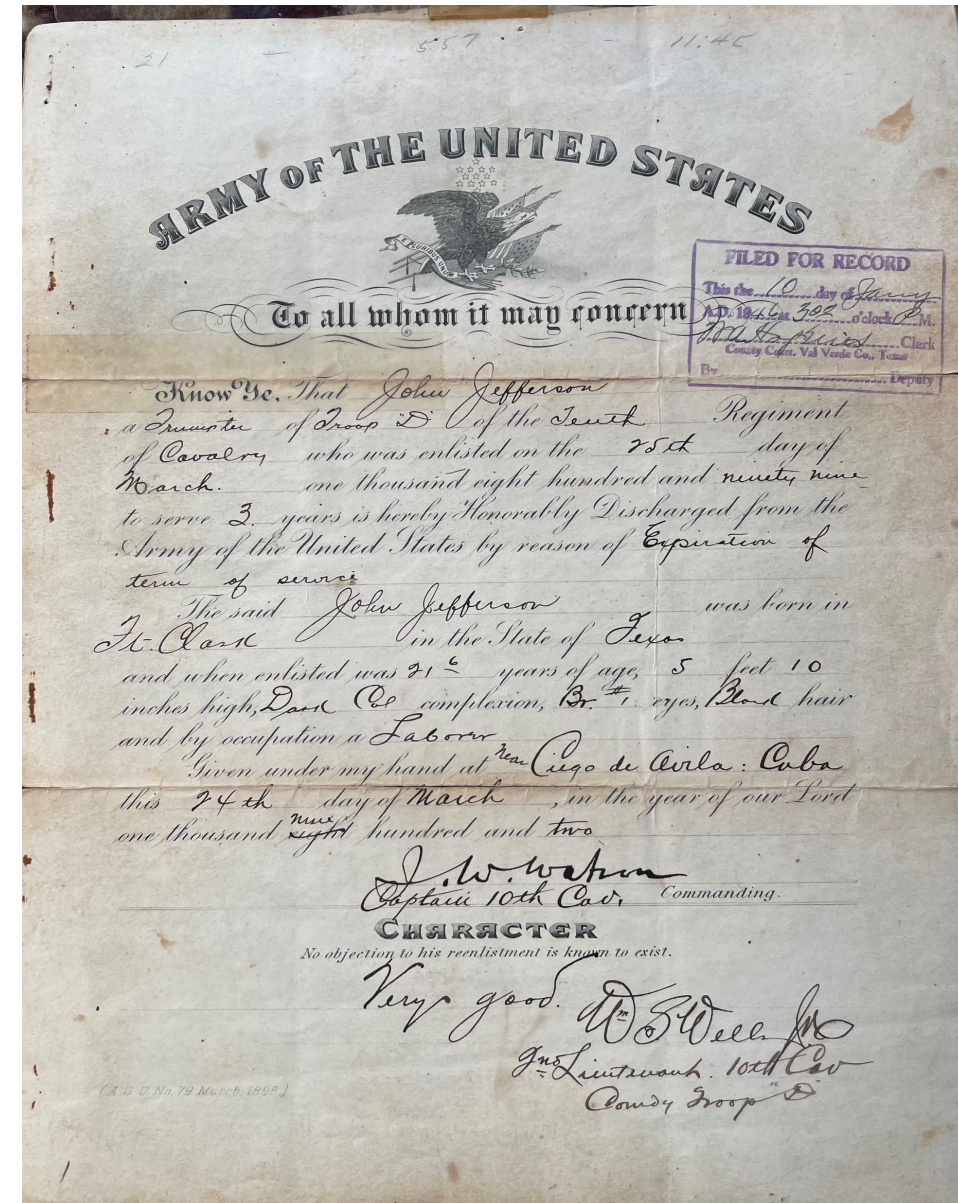 21 — 557 — 11:45
ARMY OF THE UNITED STATES
E PLURIBUS UNUM
To all whom it may concern
FILED FOR RECORD
This the 10 day of Jany
A.D. 1946 at 302 o'clock P M.
Hopkins Clerk
County Court. Val Verde Co., Texas
By Deputy
Know Ye, That John Jefferson
a Trumpter of Troop "D" of the Tenth Regiment
of Cavalry who was enlisted on the 25th day of
March. one thousand eight hundred and ninety nine
to serve 3 years is hereby Honorably Discharged from the
Army of the United States by reason of Expiration of
term of service
The said John Jefferson was born in
Ft. Clark in the State of Texas
and when enlisted was 21 6 years of age, 5 feet 10
inches high, Dark Col complexion, Br. #1 eyes, hair
and by occupation a Laborer
Given under my hand at near Ciego de Avila: Cuba
this 24th day of March, in the year of our Lord
one thousand eight nine hundred and two
J. W. Watson
Captain 10th Cav. Commanding.
CHARACTER
No objection to his reenlistment is known to exist.
Very good.
Wm S Wells Jr
2nd Lieutenant. 10th Cav
Comdg Troop "D"
(A. G. O. No. 79 March, 1898.)
1